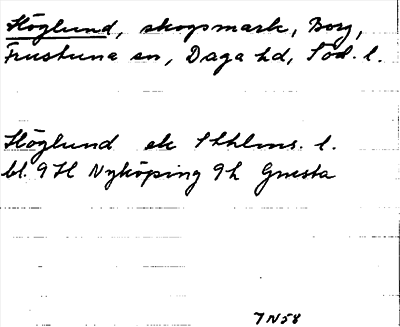 Höglund, skogsmark, Borg,
Frustuna sn, Daga hd, Söd. l.
Höglund ek Sthlms. l.
bl. 9H Nyköping 9h Gnesta
7N58